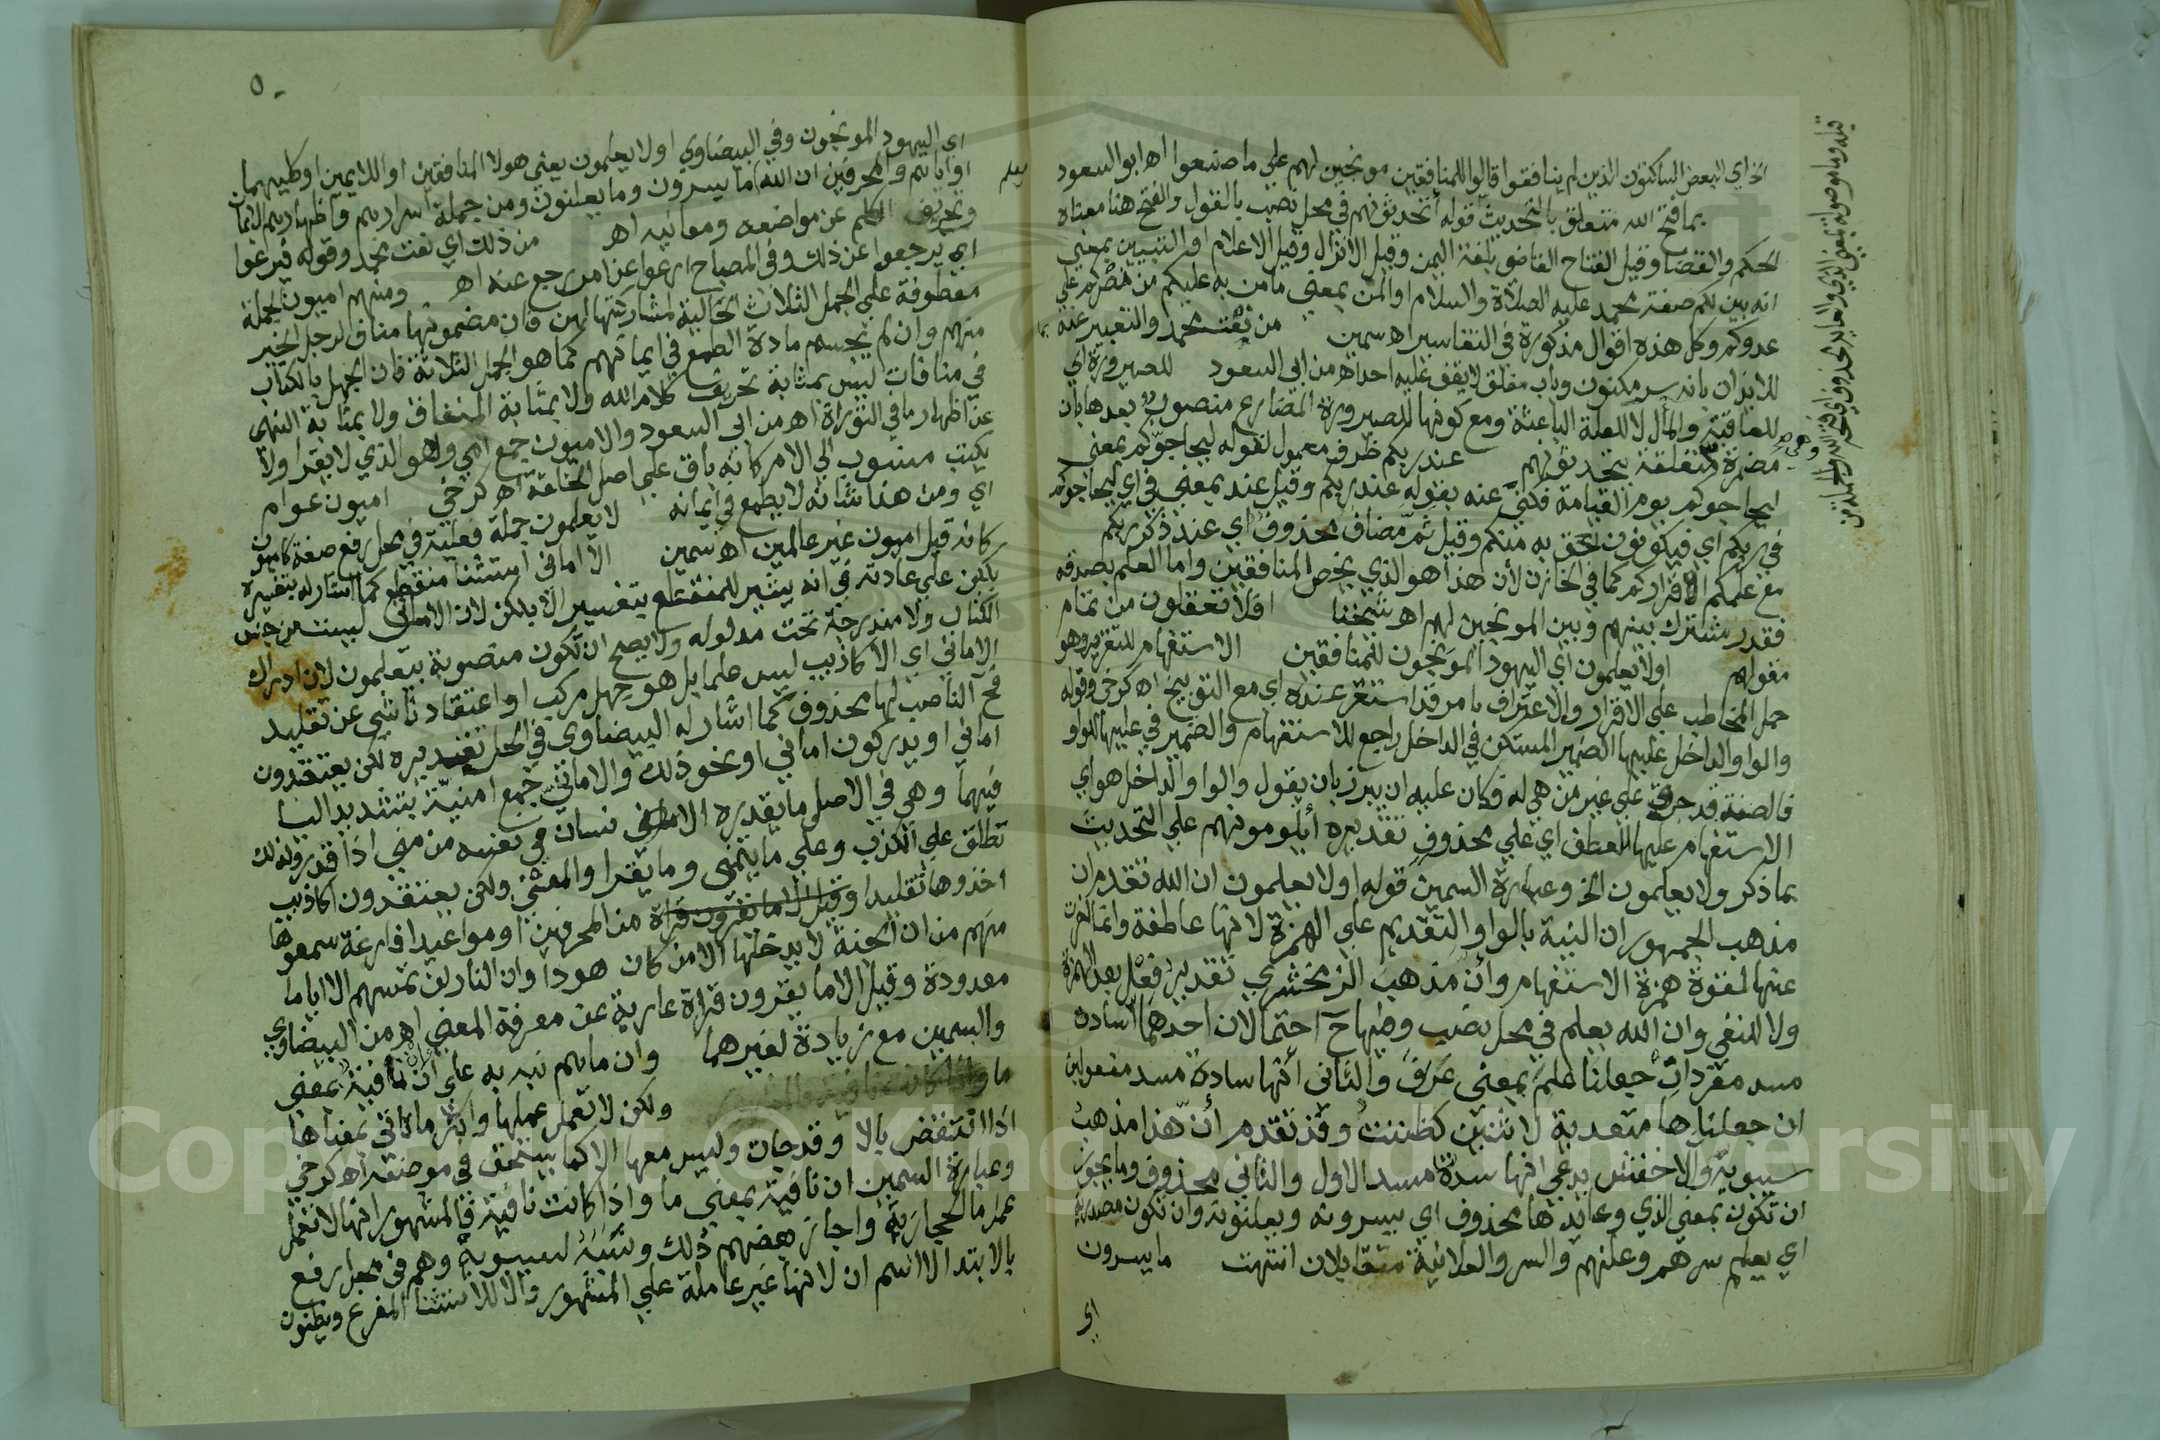 الخ اي البعض الساكتون الذين لم ينافقوا قالوا للمنافقين موبخين لهم علي ما صنعوا اه ابو السعود
بما فتح الله متعلق بالتحديث قوله أتحدثونهم في محل نصب بالقول والفتح هنا معناه
الحكم والقضا وقيل الفتاح القاضي بلغة اليمن وقيل الانزال وقيل الاعلام او التبيين بمعني
انه بين لكم صفة محمد عليه الصلاة والسلام او المن بمعني ما من به عليكم من نصركم علي
عدوكم وكل هذه اقوال مذكورة في التفاسير اه سمين من نعت محمد والتعبير عنه
للايذان بانه سر مكنون وباب مغلق لا يقف عليه احد اه من ابي السعود للصيرورة اي
للعاقبة والمأل لا للعلة الباعثة ومع كونها للصيرورة المضارع منصوب بعدها بان
مضمرة متعلقة بتحدثونهم عند ربكم ظرف معمول لقوله ليحاجوكم بمعني
ليحاجوكم يوم القيامة فكني عنه بقوله عند ربكم وقيل عند بمعني في اي ليحاجوكم
في ربكم اي فيكونون احق به منكم وقيل ثم مضاف محذوف اي عند ذكر ربكم
مع علمكم لاقراركم كما في الخازن لأن هذا هو الذي يخص المنافقين واما العلم بصدقه
فقدر مشترك بينهم وبين الموبخين لهم اه شيخنا افلا تعقلون من تمام
مقولهم اولا يعلمون اي اليهود الموبخون للمنافقين الاستفهام للتقرير وهو
حمل المخاطب علي الاقرار والاعتراف بامر قد استقر عنده اي مع التوبيخ اه كرخي وقوله
والواو الداخل عليها الضمير المستكن في الداخل راجع للاستفهام والضمير في عليها للواو
فالصفة قد جرت علي غير من هي له فكان عليه ان يبرز بان يقول والواو الداخل هو اي
الاستفهام عليها للعطف اي علي محذوف تقديره أيلومونهم علي التحديث
بما ذكر ولا يعلمون الخ وعبارة السمين قوله اولا يعلمون ان الله تقدم ان
مذهب الجمهور ان النية بالواو التقديم علي الهمزة لانها عاطفة وانما اخرت
عنها لقوة همزة الاستفهام وان مذهب الزمخشري تقدير فعل بعد الهمزة
ولا للنفي وان الله يعلم في محل نصب وفيها ح احتمالان احدهما انها سادة
مسد مفرد ان جعلنا علم بمعني عرف والثاني أنها سادة مسد مفعولين
ان جعلناها متعدية لاثنين كظننت وقد تقدم أن هذا مذهب
سيبويه والاخفش يدعي انها سدة مسد الاول والثاني محذوف وما يجوز
ان تكون بمعني الذي وعايدها محذوف اي يسرونه ويعلنونه وان تكون مصدرية
اي يعلم سرهم وعلنهم والسر والعلانية متقابلان انتهت ما يسرون
اي
اي اليهود الموبخون وفي البيضاوي اولا يعلمون يعني هولا المنافقين او اللايمين او كليهما
او اياهم والمحرفين ان الله ما يسرون وما يعلنون ومن جملة اسرارهم واظهارهم
وتحريف الكلم عن مواضعه ومعانيه اه من ذلك اي نعت محمد وقوله فيرعوا
اي يرجعوا عن ذلك وفي المصباح ارعوا عن امر رجع عنه اه ومنهم اميون الجملة
معطوفة علي الجمل الثلاث الحالية لمشاركتها لهن فان مضمونها مناف لرجا الخير
منهم وان لم يحسم مادة الطمع في ايمانهم كما هو الجمل الثلاثة فان الجهل بالكتاب
في منافات ليس بمثابة تحريف كلام الله ولا بمثابة النفاق ولا بمثابة النهي
عن اظهار ما في التوراة اه من ابي السعود والاميون جمع امي وهو الذي لا يقرا ولا
يكتب منسوب الي الام كانه باق علي اصل الخلقة اه كرخي اميون عوام
اي ومن هذا شانه لا يطمع في ايمانه لا يعلمون جملة فعلية في محل رفع صفة لاميون
كانه قيل اميون غير عالمين اه سمين الا اماني استثنا منقطع كما اشار له بتفسيره
بلكن علي عادته في انه يشير للمنقطع بتفسير الا بلكن لان الاماني ليست من جنس
الكتاب ولا مندرجة تحت مدلوله ولا يصح ان تكون منصوبة بيعلمون لان ادراك
الاماني اي الاكاذيب ليس علما بل هو جهل مركب او اعتقاد ناشي عن تقليد
فح الناصب لها محذوف كما اشار له البيضاوي في الحل تقديره لكن يعتقدون
اماني او يدركون اماني او نحو ذلك والاماني جمع امنية بتشديد اليا
فيهما وهي في الاصل ما يقدره الانسان في نفسه من مني اذا قدر ولذلك
تطلق علي الكذب وعلي ما يتمني وما يقرا والمعني ولكن يعتقدون اكاذيب
اخذوها تقليدا وقيل الا ما يقرون قراة من المحرفين او مواعيد فارغة سمعوها
منهم من ان الجنة لا يدخلها الا من كان هودا وان النار لن تمسهم الا اياما
معدودة وقيل الا ما يقرون قراة عارية عن معرفة المعني اه من البيضاوي
والسمين مع زيادة لغيرهما وان ما هم نبه به علي ان نافية بمعني
ما ولكن لا تعمل عملها واكثر ما تاتي بمعناها
اذا انتقض بالا وقد جات وليس معها الا كما سيتحقق في موضعه اه كرخي
وعبارة السمين ان نافية بمعني ما واذا كانت نافية فالمشهور انها لا تعمل
عمل ما الحجازية واجاز بعضهم ذلك ونسبه لسيبويه وهم في محل رفع
بالابتدا لا اسم ان لانها غير عاملة علي المشهور والا للاستثنا المفرغ ويظنون